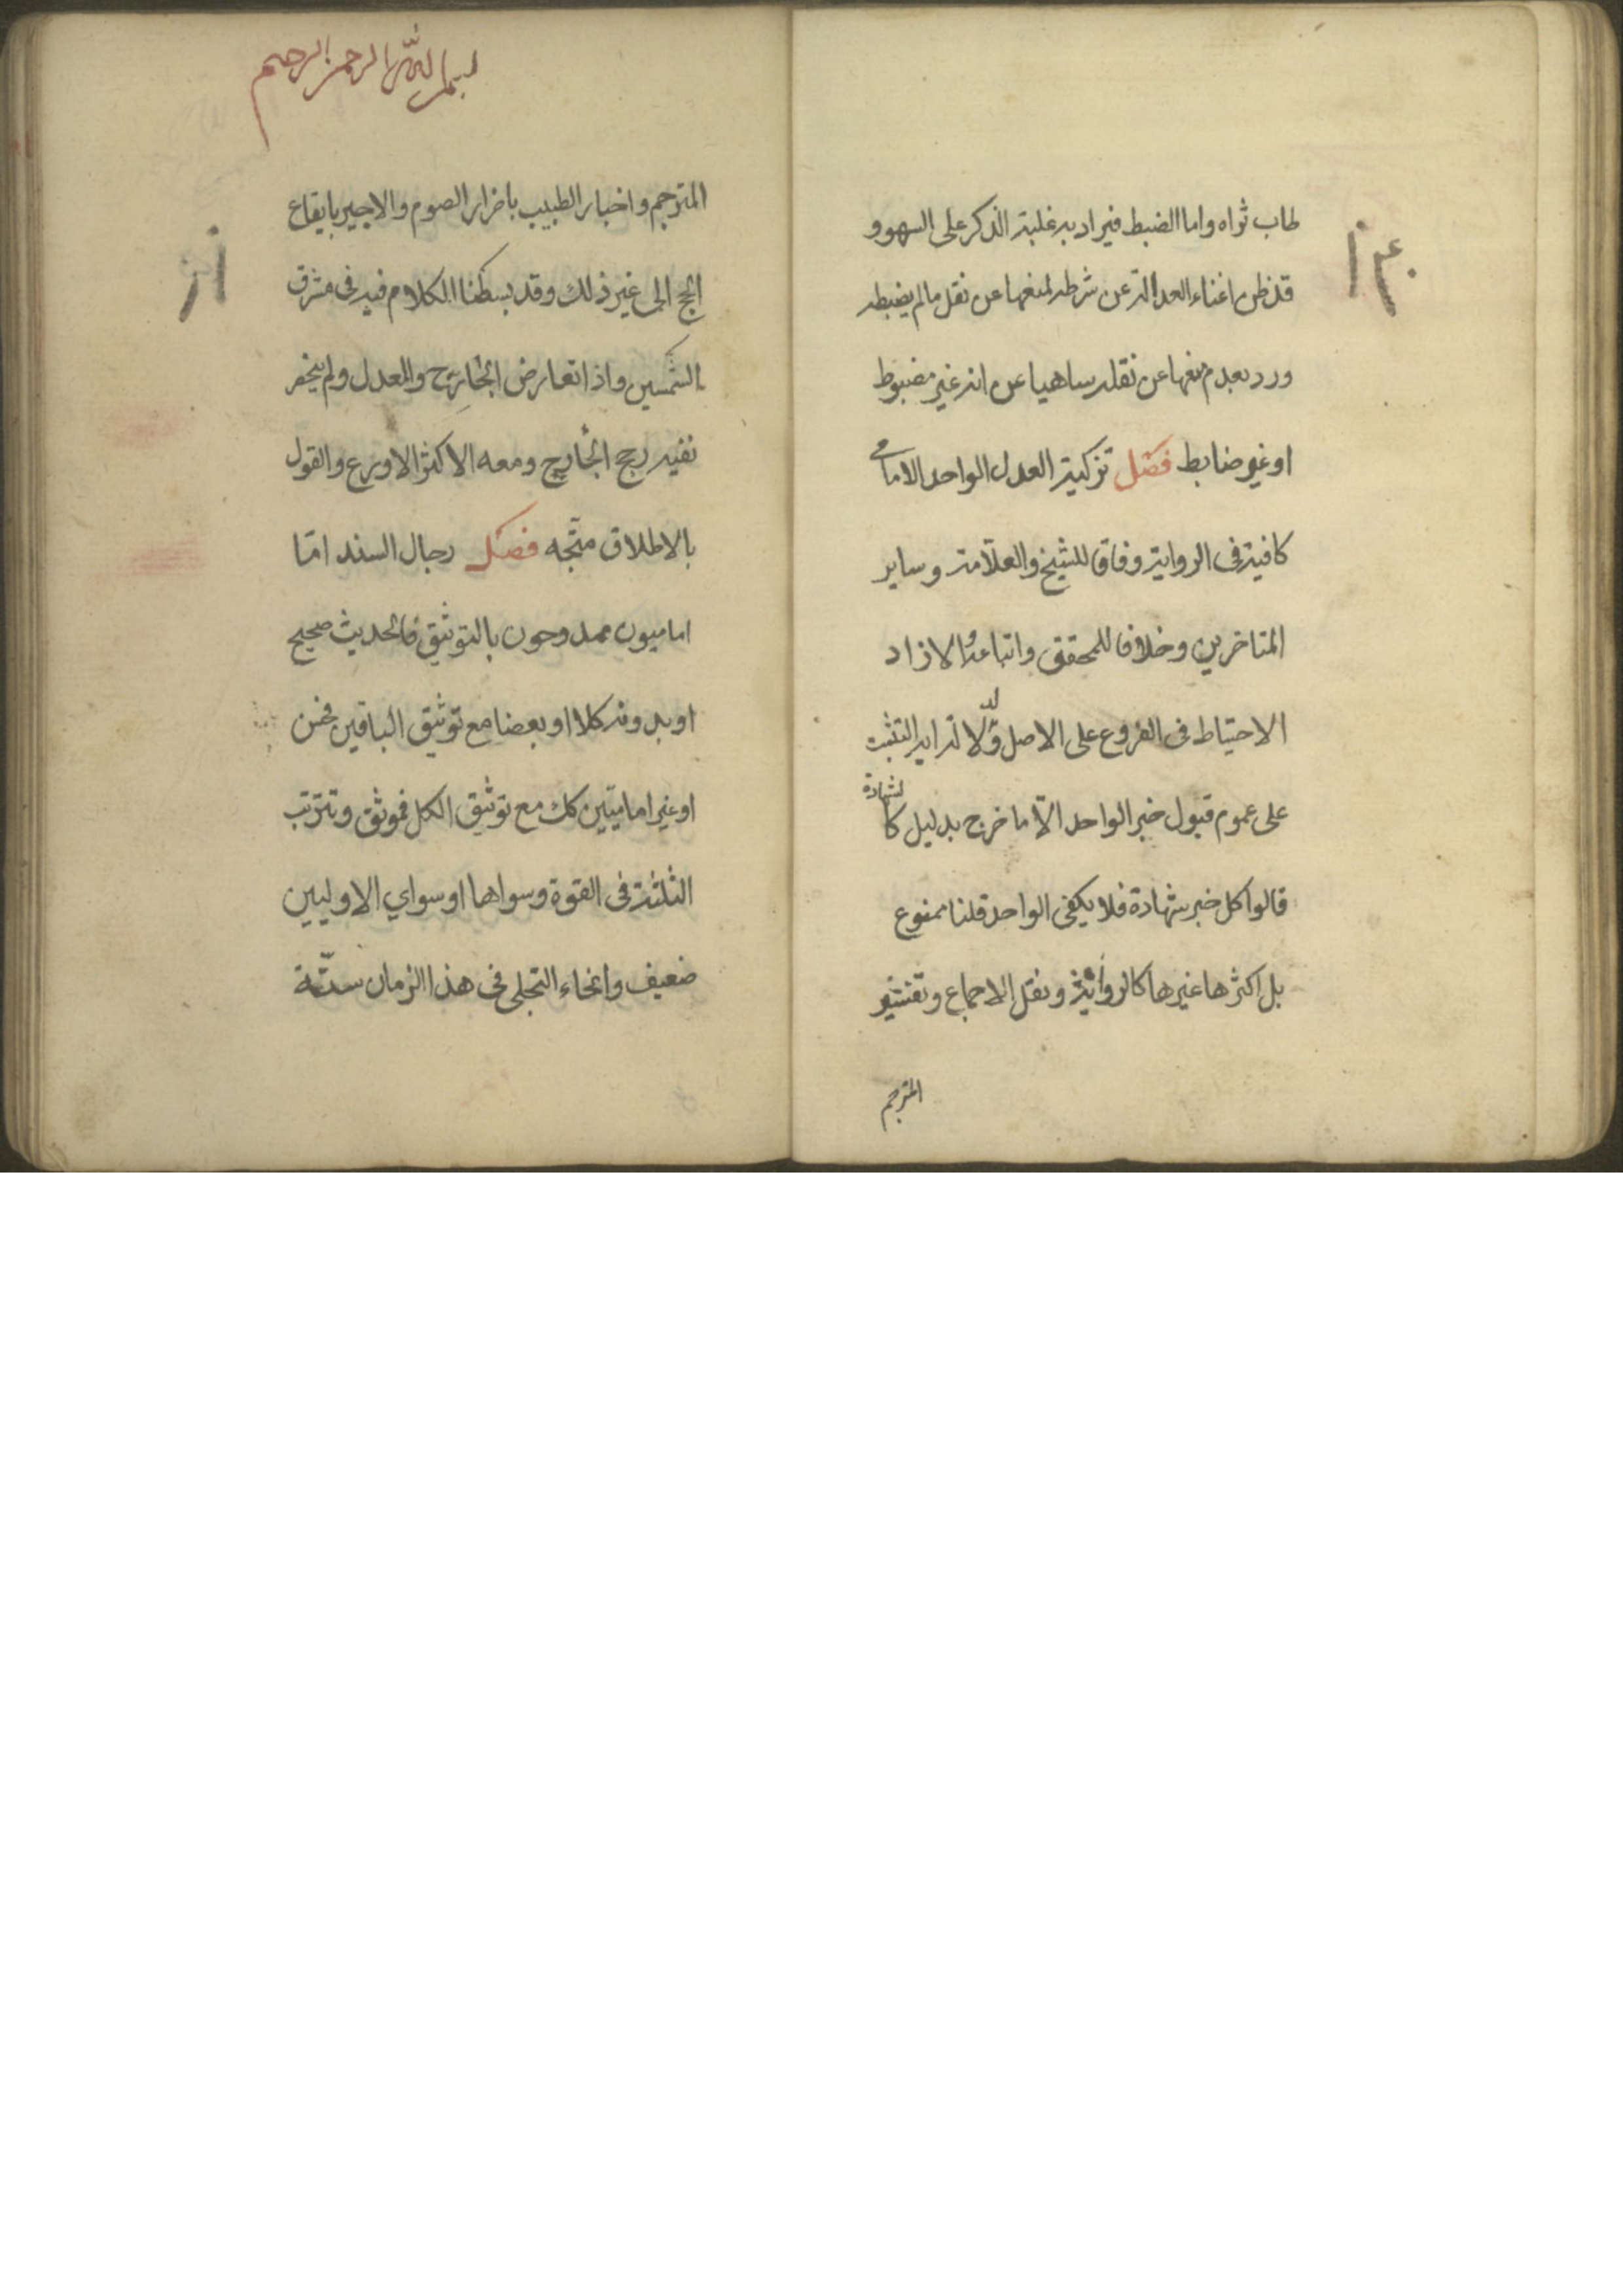 طاب ثراه واما الضبط فيراد به غلبة الذكر على السهو و
قد ظن اغناء العدالة عن شرطه لمنعها عن نقل ما لم يضبطه
ورد بعدم منعها عن نقله ساهيا عن انه غير مضبوط
او غير ضابط فصل تزكية العدل الواحد الامامي
كافية في الرواية وفاقا للشيخ والعلامة وساير
المتاخرين وخلافا للمحقق واتباعه لنا لا زاد
الاحتياط في الفروع على الاصل ولد لالة اية التثبت
على عموم قبول خبر الواحد الّا ما خرج بدليل كا لشهادة
قالوا كل خبر شهادة فلا يكفي الواحد قلنا ممنوع
بل اكثرها غيرها كالرواية ونقل الاجماع وتفسير
المترجم
بسم الله الرحمن الرحيم
المترجم واخبار الطبيب باضرار الصوم والاجير بايقاع
الحج الى غير ذلك وقد بسطنا الكلام فيه في مشرق
الشمسين واذا تعارض الجارح والمعدل ولم ينحصر
نفيه رجح الجارح ومعه الاكثر الاورع والقول
بالاطلاق متّجه فصل رجال السند امّا
اماميون ممدوحون بالتوثيق فالحديث صحيح
او بدونه كلا او بعضا مع توثيق الباقين فحسن
او غير اماميّين كك مع توثيق الكل فموثق وتترتب
الثلثة في القوة وسواها او سواي الاوليين
ضعيف وانحاء التحلي في هذا الزمان ستّة